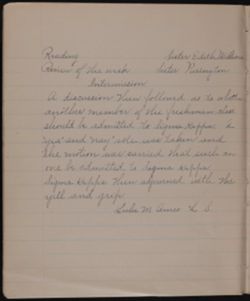 Reading Sister Edith Williams
Review of the week Sister Purington
Intermission
A discussion then followed as to whet
another member of the freshman class
should be admitted to Sigma Kappa. A
"yea" and "nay" vote was taken and
the motion was carried that such an
one be admitted to Sigma Kappa.
Sigma Kappa then adjourned with the
yell and grip.
Lulu M. Ames